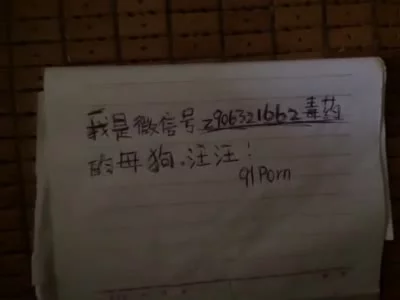 我是微信号2906321662毒药
的母狗,汪汪!
91Porn